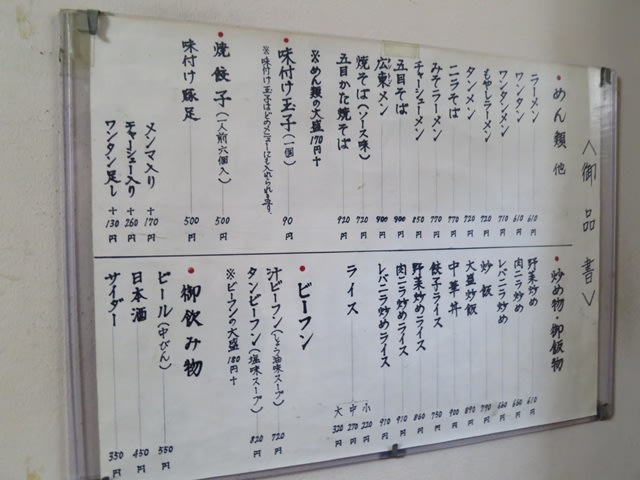 〈御品書〉
・めん類 他
ラーメン 610円
ワンタン 610円
ワンタンメン 710円
もやしラーメン 720円
タンメン 720円
ニラそば 770円
みそラーメン 770円
チャーシューメン 850円
五目そば 900円
広東メン 900円
焼そば(ソース味) 720円
五目かた焼そば 920円
※めん類の大盛170円+
・味付け玉子(一個) 90円
※味付け玉子はどのメニューにも入れられます。
・焼餃子(一人前六個入) 500円
味付け豚足 500円
メンマ入り +170円
チャーシュー入り +260円
ワンタン足し +130円
・炒め物・御飯物
野菜炒め 610円
肉ニラ炒め 660円
レバニラ炒め 660円
炒飯 790円
大盛炒飯 890円
中華丼 900円
餃子ライス 750円
野菜炒めライス 860円
肉ニラ炒めライス 910円
レバニラ炒めライス 910円
ライス
小 220円
中 270円
大 320円
・ビーフン
汁ビーフン(しょう油味スープ) 720円
タンビーフン(塩味スープ) 820円
※ビーフンの大盛180円+
・御飲み物
ビール(中びん) 550円
日本酒 450円
サイダー 350円